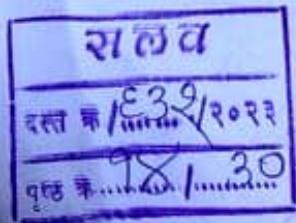 रालव
दस्त क्र /६३२/२०२२
पृष्ठ क्र......१४/......३०